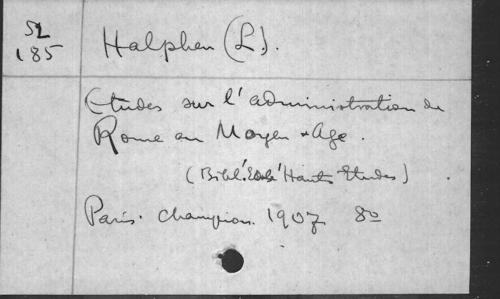 52
185
Halphen (L.).
Etudes sur l'administration de
Rome au Moyen-Age.
(Bibl. Hautes Etudes)
Paris. Champion. 1907 8o